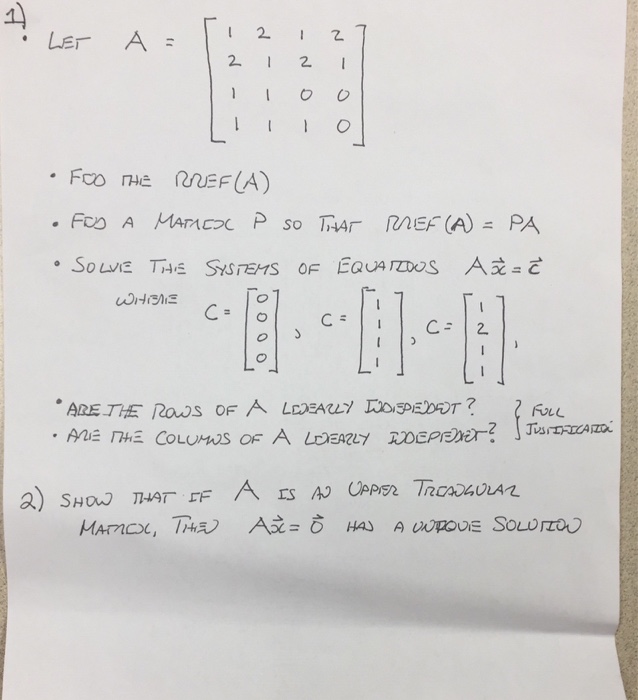 1) LET A = [ 1 2 1 2
2 1 2 1
1 1 0 0
1 1 1 0 ]
• FIND THE RREF(A)
• FIND A MATRIX P SO THAT RREF(A) = PA
• SOLVE THE SYSTEMS OF EQUATIONS Ax⃗ = c⃗
WHERE C = [ 0 0 0 0 ], C = [ 1 1 1 1 ], C = [ 1 2 1 1 ],
• ARE THE ROWS OF A LINEARLY INDEPENDENT? } FULL
• ARE THE COLUMNS OF A LINEARLY INDEPENDENT? } JUSTIFICATION
2) SHOW THAT IF A IS AN UPPER TRIANGULAR
MATRIX, THEN Ax⃗ = 0⃗ HAS A UNIQUE SOLUTION